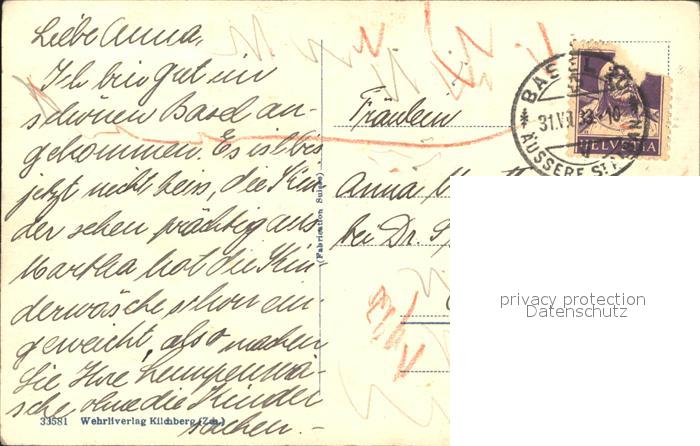 Liebe Anna,
Ich bin gut im
schönen Basel an-
gekommen. Es ist bis
jetzt nicht heiss, die Kin-
der sehen prächtig aus
Martha hat die Kin-
derwäsche schon ein-
geweicht, also machen
Sie Ihre Lumpenwä-
sche ohne die Kinder
sachen. –
33581 Wehrliverlag Kilchberg (Zch.)
(Fabrication Suisse)
Fräulein
Anna
bei Dr.
BAS
31.VII 33.-10
ÄUSSERE ST.
HELVETIA
privacy protection
Datenschutz